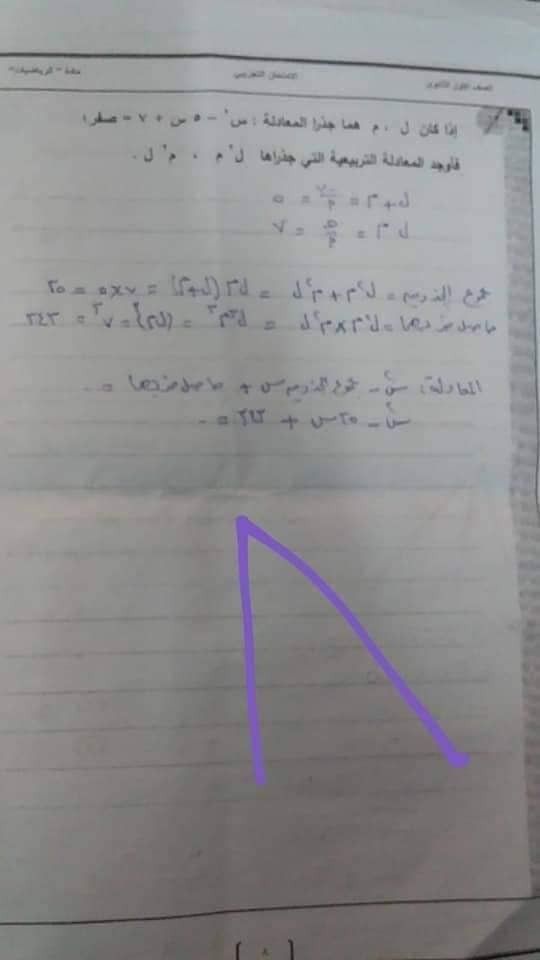 الصف الأول الثانوي الامتحان التجريبي مادة - الرياضيات -
إذا كان ل ، م هما جذرا المعادلة : س² - ٥ س + ٧ = صفر ؛
فأوجد المعادلة التربيعية التي جذراها ل² م ، م² ل .
ل + م = = ٥
ل م = = ٧
مجموع الجذرين = ل²م + م²ل = ل م (ل+م) = ٧×٥ = ٣٥
حاصل ضربهما = ل²م × م²ل = ل³م³ = (ل م)³ = ٧³ = ٣٤٣
المعادلة : س² - مجموع الجذرين س + حاصل ضربهما = ٠
س² - ٣٥ س + ٣٤٣ = ٠
[ ٨ ]